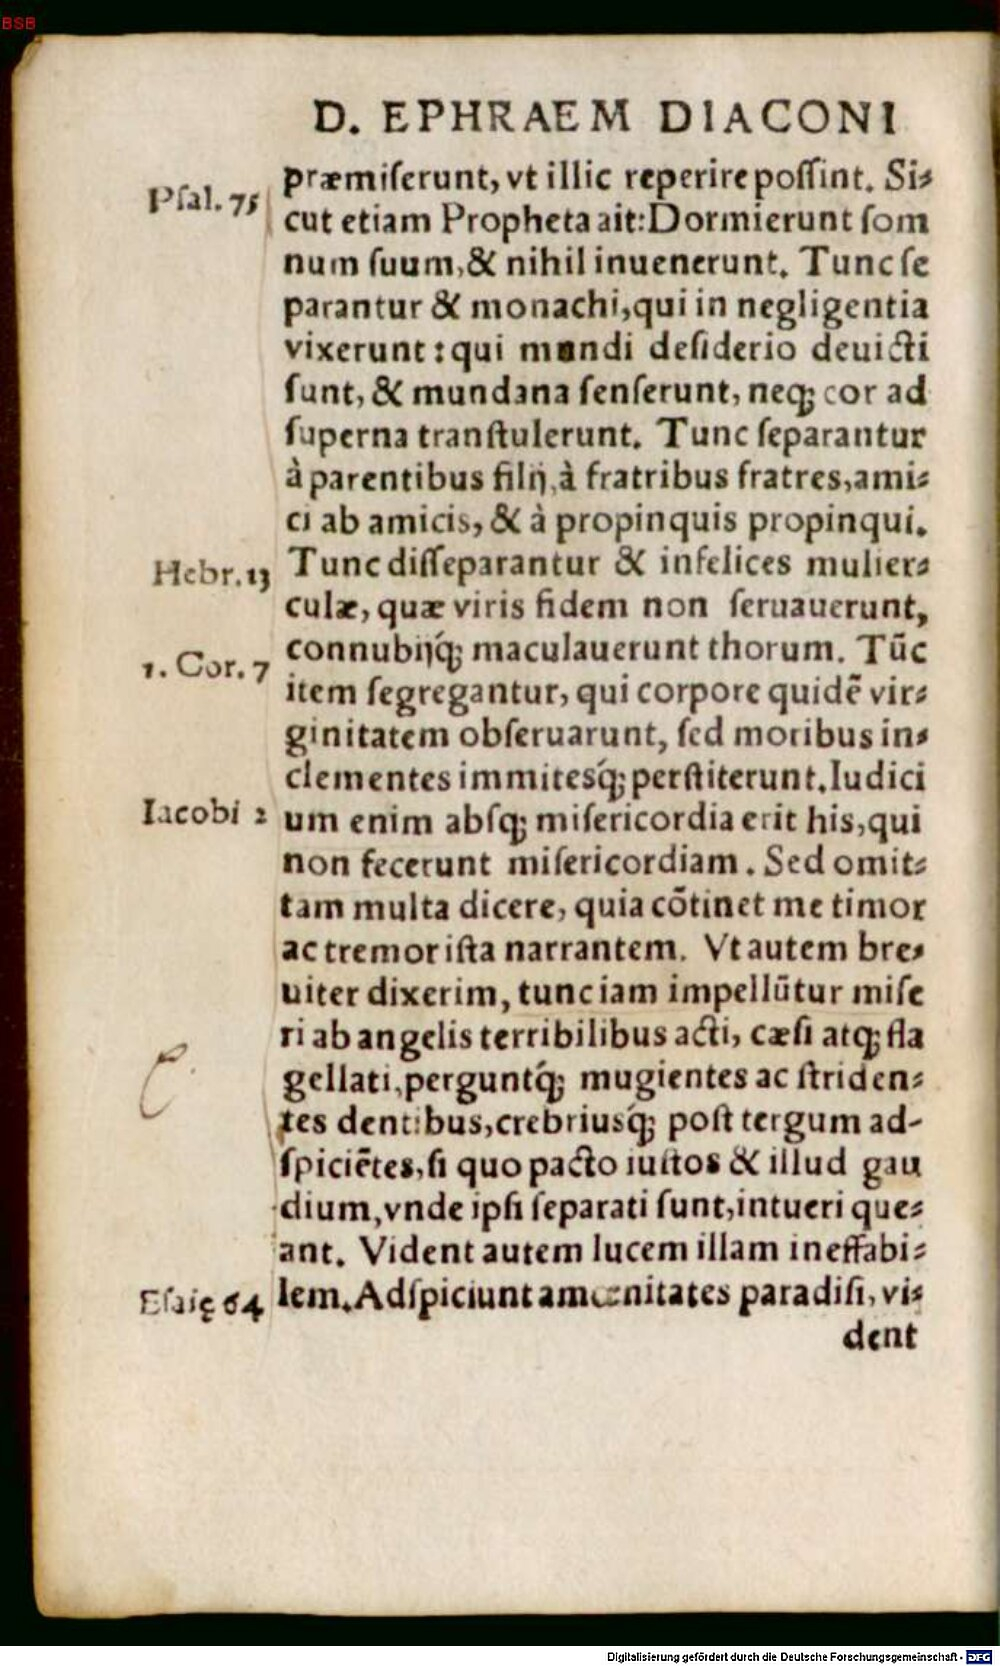 BSB
D. EPHRAEM DIACONI
Psal. 75
præmiserunt, vt illic reperire possint. Si-
cut etiam Propheta ait: Dormierunt som
num suum, & nihil inuenerunt. Tunc se
parantur & monachi, qui in negligentia
vixerunt: qui mundi desiderio deuicti
sunt, & mundana senserunt, neq; cor ad
superna transtulerunt. Tunc separantur
à parentibus filij, à fratribus fratres, ami-
ci ab amicis, & à propinquis propinqui.
Hebr. 13
Tunc disseparantur & infelices mulier-
culæ, quæ viris fidem non seruauerunt,
connubijq́; maculauerunt thorum. Tūc
1. Cor. 7
item segregantur, qui corpore quidē vir-
ginitatem obseruarunt, sed moribus in-
clementes immitesq́; perstiterunt. Iudici
Iacobi 2
um enim absq; misericordia erit his, qui
non fecerunt misericordiam. Sed omit-
tam multa dicere, quia cōtinet me timor
ac tremor ista narrantem. Vt autem bre-
uiter dixerim, tunc iam impellūtur mise
ri ab angelis terribilibus acti, cæsi atq; fla
gellati, perguntq́; mugientes ac striden-
tes dentibus, crebriusq́; post tergum ad-
spiciētes, si quo pacto iustos & illud gau
dium, vnde ipsi separati sunt, intueri que-
ant. Vident autem lucem illam ineffabi-
Esaię 64
lem. Adspiciunt amœnitates paradisi, vi-
dent
Digitalisierung gefördert durch die Deutsche Forschungsgemeinschaft - DFG